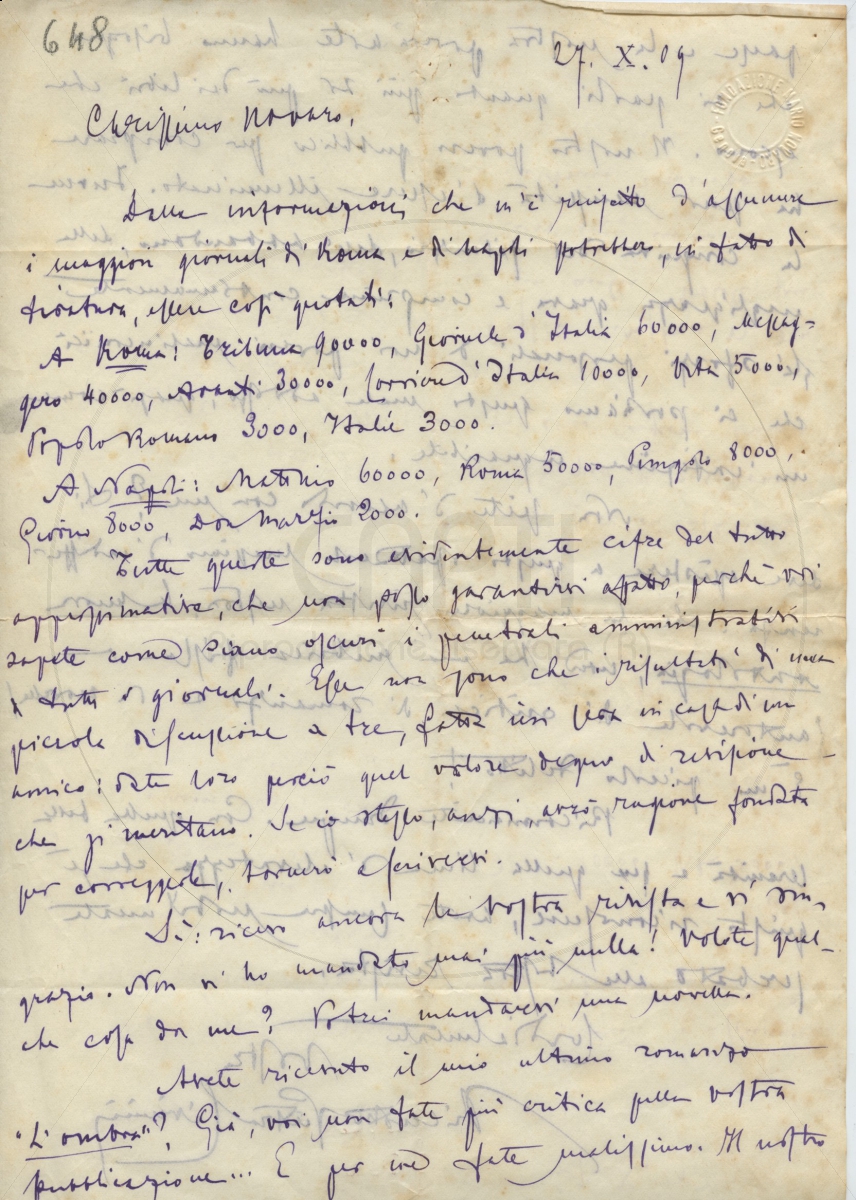 648
27. X. 09
FONDAZIONE MARIO NOVARO
Carissimo Novaro,
Dalle informazioni che m'è riuscito d'assumere
i maggiori giornali di Roma e di Napoli potrebbero, in fatto di
tiratura, essere così quotati:
A Roma: Tribuna 90000, Giornale d'Italia 60000, Messag-
gero 40000, Avanti 30000, Corriere d'Italia 10000, Vita 5000,
Popolo Romano 3000, Italie 3000.
A Napoli: Mattino 60000, Roma 50000, Pungolo 8000,
Giorno 8000, Don Marzio 2000.
Tutte queste sono evidentemente cifre del tutto
approssimative, che non posso garantirvi affatto, perchè voi
sapete come siano oscuri i penetrali amministrativi
di tutti i giornali. Esse non sono che i risultati di una
piccola discussione a tre, fatta ieri sera in casa di un
amico: date loro perciò quel valore degno di revisione
che si meritano. Se io stesso, anzi, avrò ragione fondata
per correggerle, tornerò a scrivervi.
Sì: ricevo ancora la vostra rivista e vi rin-
grazio. Non vi ho mandato mai più nulla! Volete qual-
che cosa da me? Potrei mandarvi una novella.
Avete ricevuto il mio ultimo romanzo
"L'ombra"? Già, voi non fate più critica sulla vostra
pubblicazione... E per me fate malissimo. Il nostro